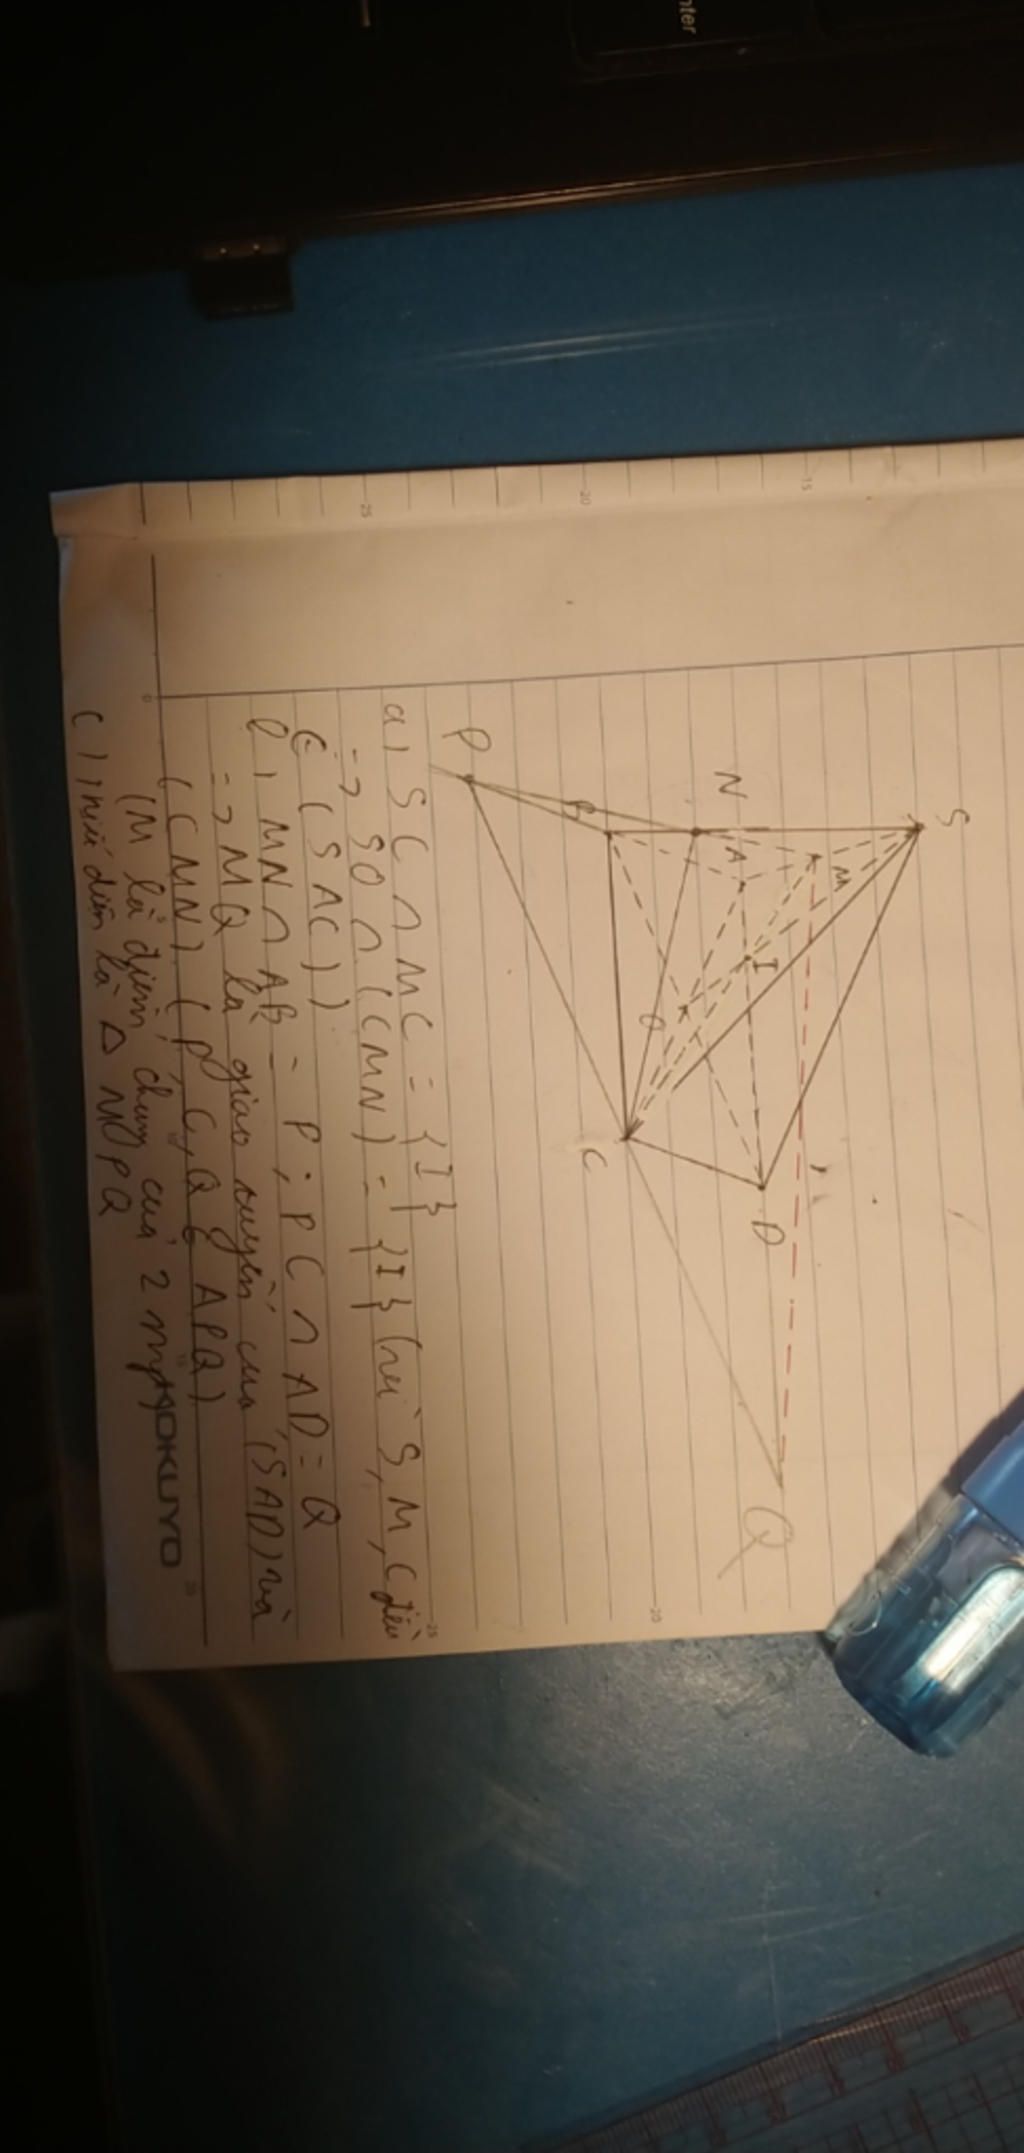 S
M
N
A
I
B
O
D
P
C
Q
a) SC ∩ MC = {I}
-> SO ∩ (CMN) = {I} (vì S, M, C đều
∈ (SAC))
b, MN ∩ AB = P ; PC ∩ AD = Q
-> MQ là giao tuyến của (SAD) và
(CMN) (P, C, Q ∈ APQ)
(M là điểm chung của 2 mp)
c) Thiết diện là △ MPQ
KOKUYO
nter